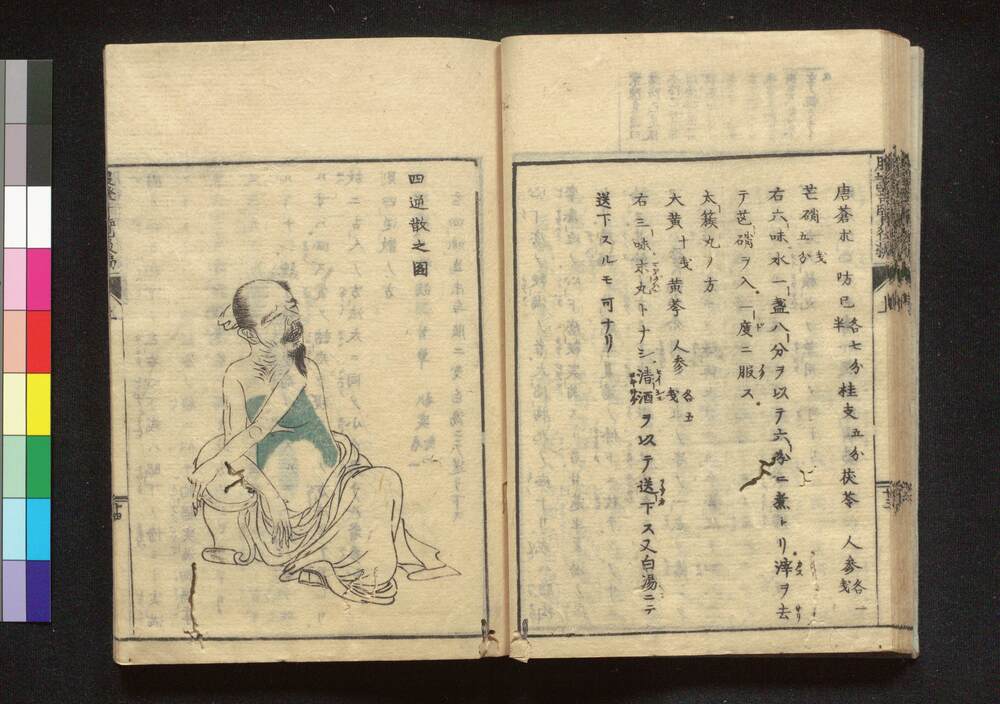 唐蒼朮 防已 各七分半 桂支五分 茯苓 人参 各一戔
芒硝五分
右六味水一盞八分ヲ以テ六分ニ煮トリ滓ヲ去
テ芒硝ヲ入一度ニ服ス
太簇丸ノ方
大黄 十戔 黄芩 人参 各五戔
右三味末丸トナシ清酒ヲ以テ送下ス又白湯ニテ
送下スルモ可ナリ
四逆散之圖
十四